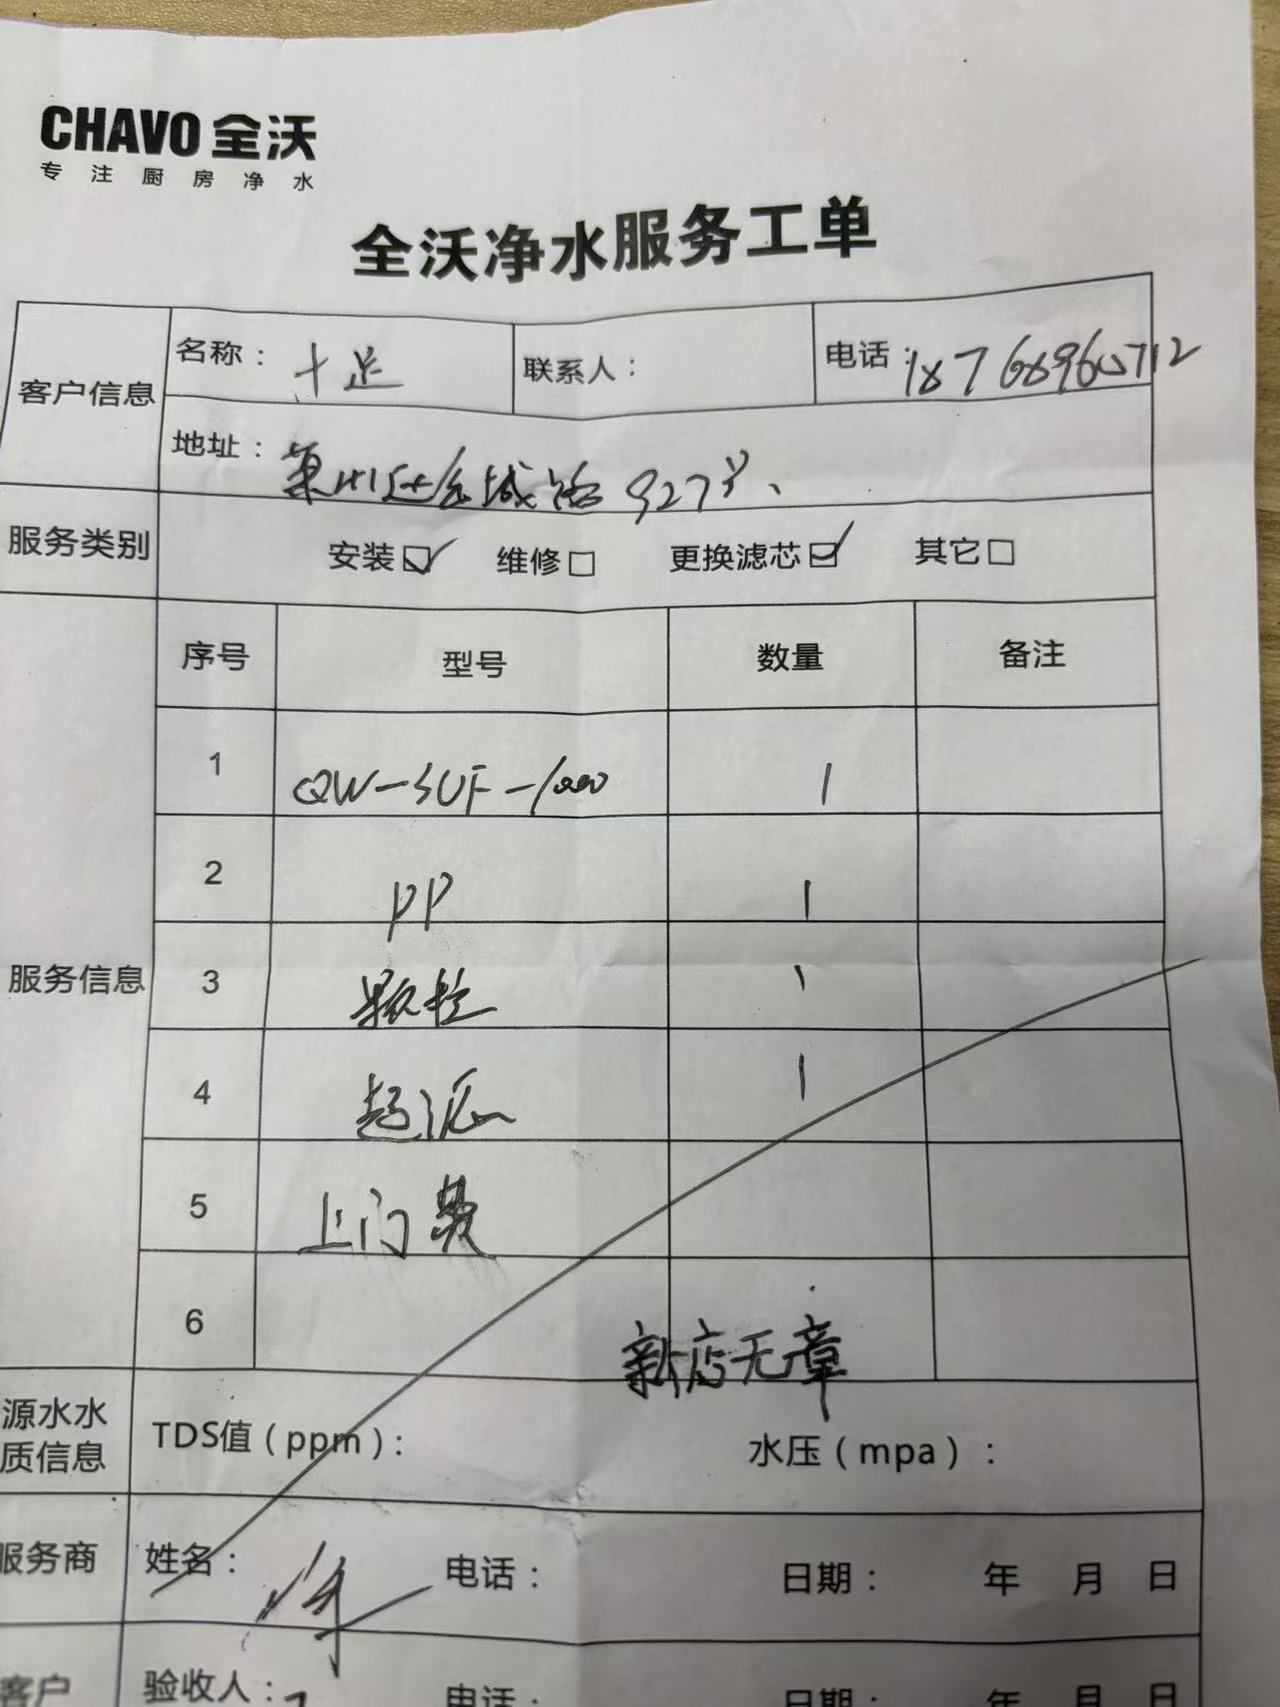 CHAVO 全沃
专注厨房净水
全沃净水服务工单
客户信息
名称：十足
联系人：
电话：18768960712
地址：金城路927号、
服务类别
安装☑ 维修□ 更换滤芯☑ 其它□
服务信息
序号 型号 数量 备注
1 QW-SUF-1000 1
2 PP 1
3 颗粒 1
4 超滤 1
5 上门费
6
新店无章
源水水质信息
TDS值（ppm）：
水压（mpa）：
服务商
姓名：
电话：
日期： 年 月 日
客户
验收人：
电话：
日期： 年 月 日